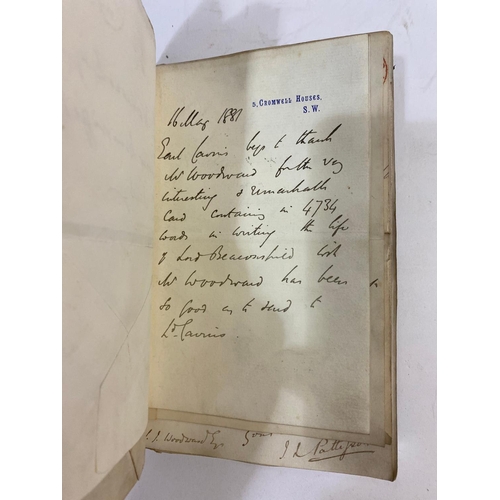 5, CROMWELL HOUSES,
S.W.
16 May 1881
Earl Cairns begs to thank
Mr Woodward for the very
interesting & remarkable
Card containing in 4734
words in writing the life
of Lord Beaconsfield wch
Mr Woodward has been
so good as to send to
Ld. Cairns.
Woodward Esq
J L Pattisson